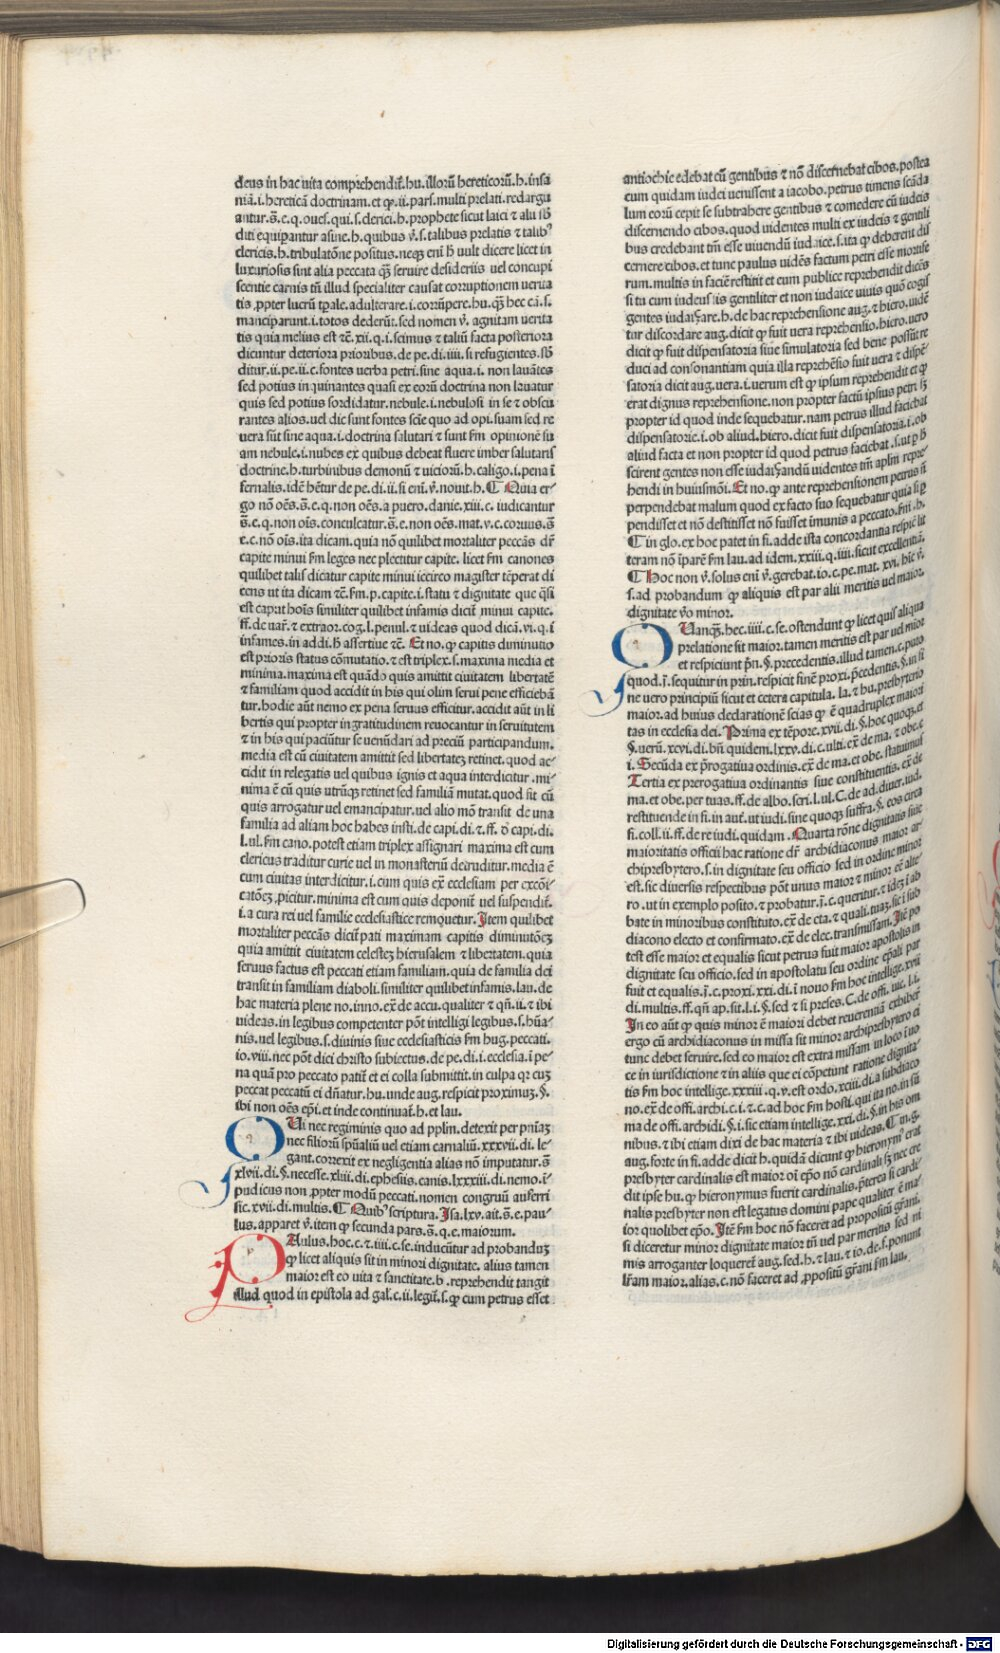 deus in hac uita comprehendit̄. hu. illorū hereticorū. h. insa
niā. i. hereticā doctrinam. et ꝙ. ii. pars. multi prelati. redargu
antur. s̄. e. q. oues. qui. s. clerici. h. prophete sicut laici ⁊ alii sb̄
diti equipantur asine. h. quibus v̄. s. talibus prelatis ⁊ talibꝰ
clericis. h. tribulatōne positus. neqꝫ enī b̄ uult dicere licet in
luxuriosis sint alia peccata qꝫ̄ seruire desideriis uel concupi
scentie carnis tn̄ illud specialiter causat corruptionem uerita
tis ꝓpter lucrū tꝑale. adulterare. i. corrūpere. hu. qꝫ̄ hec cā. s.
manciparunt. i. totos dederūt. sed nomen v̄. agnitam uerita
tis quia melius est ⁊c̄. xii. q. i. scimus ⁊ taliū facta posteriora
dicuntur deteriora prioribus. de pe. di. iiii. si refugientes. sb̄
ditur. ii. pe. ii. c. fontes uerba petri. sine aqua. i. non lauātes
sed potius inquinantes quasi ex eorū doctrina non lauatur
quis sed potius sordidatur. nebule. i. nebulosi in se ⁊ obscu
rantes alios. uel dic sunt fontes scīe quo ad opi. suam sed re
uera sūt sine aqua. i. doctrina salutari ⁊ sunt fm̄ opinionē su
am nebule. i. nubes ex quibus debeat fluere imber salutaris
doctrine. h. turbinibus demonū ⁊ uiciorū. h. caligo. i. pena ī
fernalis. idē hētur de pe. di. ii. si enī. v̄. nouit. h. ¶ Quia er
go nō oēs. s̄. e. q. non oēs. a puero. danie. xiii. c. iudicantur
s̄. e. q. non oīs. conculcatur. s̄. e. non oēs. mat. v. c. coruus. s̄
e. c. nō oīs. ita dicam. quia nō quilibet mortaliter peccās dr̄
capite minui fm̄ leges nec plectitur capite. licet fm̄ canones
quilibet talis dicatur capite minui iccirco magister tēperat di
cens ut ita dicam ⁊c̄. fm. p. capite. i. statu ⁊ dignitate que q̄si
est caput hoīs similiter quilibet infamis dicit̄ minui capite.
ff. de uar. ⁊ extraor. cog. l. penul. ⁊ uideas quod dicā. vi. q. i
infames. in addi. b̄ assertiue ⁊c̄. Et no. ꝙ capitis diminutio
est prioris status cōmutatio. ⁊ est triplex. s. maxima media et
minima. maxima est quādo quis amittit ciuitatem libertatē
⁊ familiam quod accidit in his qui olim serui pene efficiebā
tur. hodie aūt nemo ex pena seruus efficitur. accidit aūt in li
bertis qui propter ingratitudinem reuocantur in seruitutem
⁊ in his qui paciūtur se uenūdari ad preciū participandum.
media est cū ciuitatem amittit sed libertatēꝫ retinet. quod ac
cidit in relegatis uel quibus ignis et aqua interdicitur. mi
nima ē cū quis utrūqꝫ retinet sed familiā mutat. quod fit cū
quis arrogatur uel emancipatur. uel alio mō transit de una
familia ad aliam hoc habes insti. de capi. di. ⁊. ff. ō capi. di.
l. ul. fm cano. potest etiam triplex assignari maxima est cum
clericus traditur curie uel in monasteriū detruditur. media ē
cum ciuitas interdicitur. i. cum quis ex ecclesiam per excōi
catōeꝫ ꝓicitur. minima est cum quis deponit̄ uel suspendit̄.
i. a cura rei uel familie ecclesiastice remouetur. Item quilibet
mortaliter peccās dicit̄ pati maximam capitis diminutōeꝫ
quia amittit ciuitatem celestēꝫ hierusalem ⁊ libertatem. quia
seruus factus est peccati etiam familiam. quia de familia dei
transit in familiam diaboli. similiter quilibet infamis. lau. de
hac materia plene no. inno. ex̄ de accu. qualiter ⁊ qn̄. ii. ⁊ ibi
uideas. in legibus competenter pōt intelligi legibus. s. hūa
nis. uel legibus. s. diuinis siue ecclesiasticis fm hug. peccati.
io. viii. nec pōt dici christo subiectus. de pe. di. i. ecclesia. i pe
na quā pro peccato patit̄ et ei colla submittit. in culpa qꝛ cuꝫ
peccat peccatū ei dn̄atur. hu. unde aug. respicit proximuꝫ. §.
ibi non oēs ep̄i. et inde continuat̄. h. et lau.
QVi nec regiminis quo ad pplm̄. detexit per pn̄iaꝫ
nec filiorū spn̄aliū uel etiam carnaliū. xxxvii. di. le
gant. correxit ex negligentia alias nō imputatur. s̄
xlvii. di. §. necesse. xliii. di. ephesiis. canis. lxxxiii. di. nemo. ī
pudicus non ꝓpter modū peccati. nomen congruū auferri
sic. xvii. di. multis. ¶ Quibꝰ scriptura. Isa. lxv. ait. s̄. e. pau
lus. apparet v̄. item ꝙ secunda pars. s̄. q. e. maiorum.
PAulus. hoc. c. ⁊. iiii. c. se. inducūtur ad probanduꝫ
ꝙ licet aliquis sit in minori dignitate. alius tamen
maior est eo uita ⁊ sanctitate. b. reprehendit tangit
illud quod in epistola ad gal. c. ii. legit̄. s. ꝙ cum petrus esset
antiochie edebat cū gentibus ⁊ nō discernebat cibos. postea
cum quidam iudei uenissent a iacobo. petrus timens scāda
lum eorū cepit se subtrahere gentibus ⁊ comedere cū iudeis
discernendo cibos. quod uidentes multi ex iudeis ⁊ gentili
bus credebant tm̄ esse uiuendū iudaice. s. ita ꝙ deberent dis
cernere cibos. et tunc paulus uidēs factum petri esse mortife
rum. multis in faciē restitit et eum publice reprehendit dicēs
si tu cum iudeus sis gentiliter et non iudaice uiuis quō cogis
gentes iudaiꝫare. h. de hac reprehensione aug. ⁊ hiero. uidē
tur discordare aug. dicit ꝙ fuit uera reprehensio. hiero. uero
dicit ꝙ fuit dispensatoria siue simulatoria sed bene possūt re
duci ad consonantiam quia illa reprehēsio fuit uera ⁊ dispē
satoria dicit aug. uera. i. uerum est ꝙ ipsum reprehendit et ꝙ
erat dignus reprehensione. non propter factū ipsius petri sꝫ
propter id quod inde sequebatur. nam petrus illud faciebat
dispensatorie. i. ob aliud. hiero. dicit fuit dispensatoria. i. ob
aliud facta et non propter id quod petrus faciebat. s. ut ꝑ b̄
scirent gentes non esse iudaiꝫandū uidentes tm̄ aplm̄ repre
hendi in huiusmōi. Et no. ꝙ ante reprehensionem petrus n̄
perpendebat malum quod ex facto suo sequebatur quia si ꝑ
pendisset et nō destitisset nō fuisset imunis a peccato. fm̄. h.
¶ In glo. ex hoc patet in fi. adde ista concordantia respic̄ lit
teram nō īparē fm̄ lau. ad idem. xxiii. q. iiii. sicut excellentiā.
¶ Hoc non v̄. solus enī v̄. gerebat. io. c. pe. mat. xvi. hīc v̄.
s. ad probandum ꝙ aliquis est par alii meritis uel maior.
dignitate v̄o minor.
QVanqꝫ̄. hec. iiii. c. se. ostendunt ꝙ licet quis aliqua
prelatione sit maior. tamen meritis est par uel mior
et respiciunt pn̄. §. precedentis. illud tamen. c. puto
quod. ī. sequitur in prin. respicit finē proxi. p̄cedentis. §. in fi
ne uero principiū sicut et cetera capitula. la. ⁊ hu. presbyterio
maior. ad huius declarationē scias ꝙ ē quadruplex maiori
tas in ecclesia dei. Prima ex tēpore. xvii. di. §. hoc quoqꝫ. et
§. uerū. xcvi. di. bn̄ quidem. lxxv. di. c. ulti. ex̄ de ma. ⁊ obe. c
i. Secūda ex p̄rogatiua ordinis. ex̄ de ma. et obe. statuimus
Tertia ex prerogatiua ordinantis siue constituentis. ex̄ de
ma. et obe. per tuas. ff. de albo. scri. l. ul. C. de ad. diuer. iud.
restituende in fi. in aut̄. ut iudi. sine quoqꝫ suffra. §. eos circa
fi. coll. ii. ff. de re iudi. quidam. Quarta rōne dignitatis siue
maioritatis officii hac ratione dr̄ archidiaconus maior ar
chipresbytero. s. in dignitate seu officio sed in ordine minor
est. sic diuersis respectibus pōt unus maior ⁊ minor eē alte
ro. ut in exemplo posito. ⁊ probatur. ī. c. queritur. ⁊ ideꝫ ī ab
bate in minoribus constituto. ex̄ de eta. ⁊ quali. tuaꝫ. sic ī sub
diacono electo et confirmato. ex̄ de elec. transmissam. Itē po
test esse maior et equalis sicut petrus fuit maior apostolis in
dignitate seu officio. sed in apostolatu seu ordine ep̄ali par
fuit et equalis. ī. c. proxi. xxi. di. i nouo fm hoc intellige. xvii
di. multis. ff. qn̄ ap. sit. l. i. §. sed ⁊ si preses. C. de offi. uic. l. i.
In eo aūt ꝙ quis minor ē maiori debet reuerentiā exhiber̄
ergo cū archidiaconus in missa sit minor archipresbytero ei
tunc debet seruire. sed eo maior est extra missam in loco ī uo
ce in iurisdictione ⁊ in aliis que ei cōpetunt ratione dignita
tis fm hoc intellige. xxxiii. q. v. est ordo. xciii. di. a subdiaco
no. ex̄ de offi. archi. c. i. ⁊. c. ad hoc fm hosti. qui ita no. in sū
ma de offi. archidi. §. i. sic etiam intellige. xxi. di. §. in his om
nibus. ⁊ ibi etiam dixi de hac materia ⁊ ibi uideas. ¶ In. g.
aug. forte in fi. adde dicit h. quidā dicunt ꝙ hieronymꝰ erat
presbyter cardinalis est maior oī ep̄o nō cardinali sꝫ nec cre
dit ipse hu. ꝙ hieronymus fuerit cardinalis. p̄terea si cardi
nalis presbyter non est legatus domini pape qualiter ē ma
ior quolibet ep̄o. Itē fm hoc nō faceret ad propositū gr̄ani.
si diceretur minor dignitate maior tn̄ uel par meritis sed ni
mis arroganter loqueret̄ aug. sed. h. ⁊ lau. ⁊ io. de. f. ponunt
lr̄am maior. alias. c. nō faceret ad ꝓpositū gr̄ani fm lau.
Digitalisierung gefördert durch die Deutsche Forschungsgemeinschaft - DFG